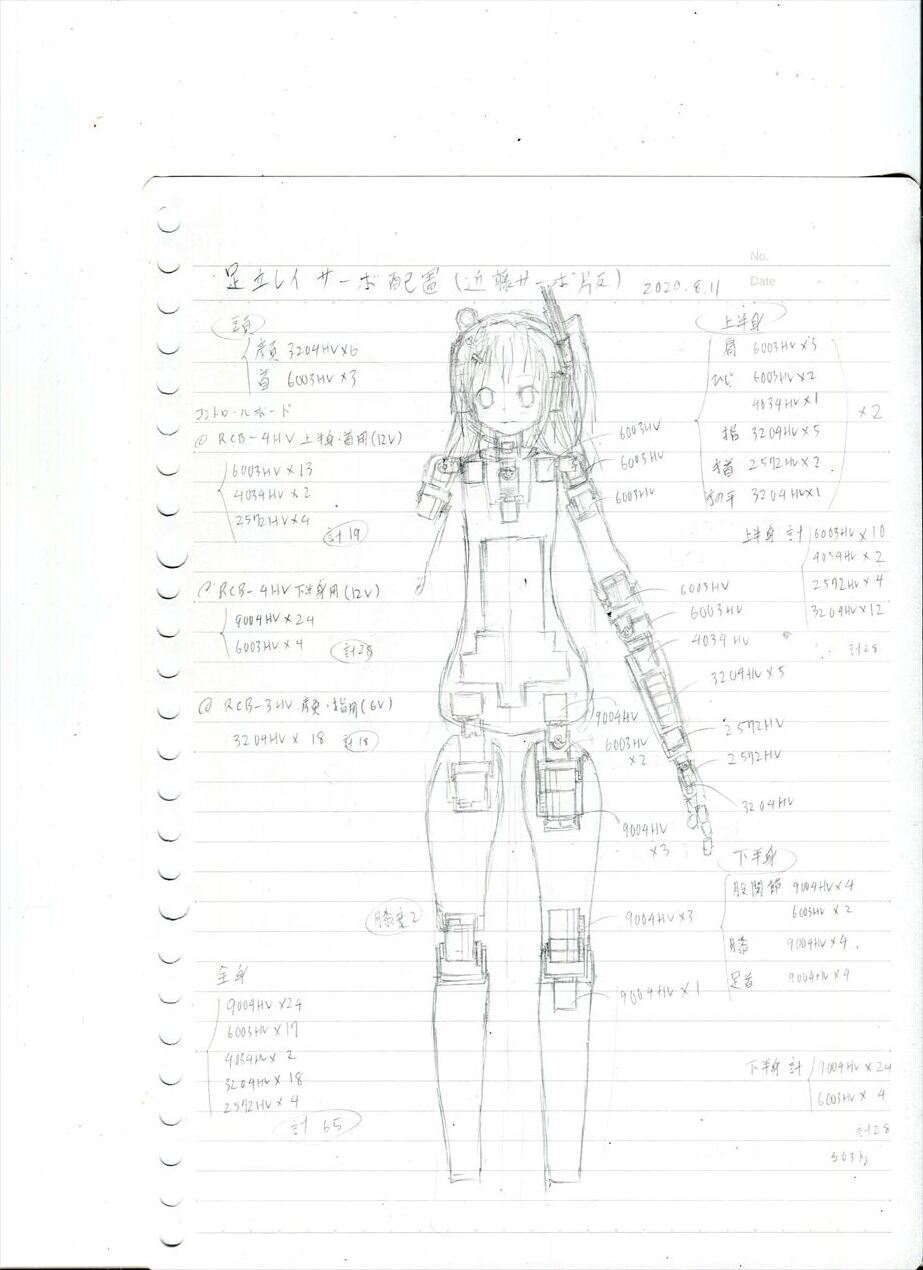 足立レイ サーボ配置(近藤サーボ版) 2020.8.11
No.
Date
頭
顔 3204HV×6
首 6003HV×3
コントロールボード
@ RCB-4HV 上半身・首用(12V)
6003HV×13
4034HV×2
2572HV×4
計19
@ RCB-4HV 下半身用(12V)
9004HV×24
6003HV×4
計28
@ RCB-3HV 顔・指用(6V)
3204HV×18 計18
膝重2
全身
9004HV×24
6003HV×17
4034HV×2
3204HV×18
2572HV×4
計65
6003HV
6003HV
6003HV
6003HV
6003HV
4034HV
3204HV×5
2572HV
2572HV
3204HV
9004HV
6003HV
×2
9004HV
×3
9004HV×3
9004HV×1
上半身
肩 6003HV×3
ひじ 6003HV×2
4034HV×1
指 3204HV×5
手首 2572HV×2
手の平 3204HV×1
×2
上半身 計
6003HV×10
4034HV×2
2572HV×4
3204HV×12
計28
下半身
股関節 9004HV×4
6003HV×2
膝 9004HV×4
足首 9004HV×4
下半身 計
9004HV×24
6003HV×4
計28